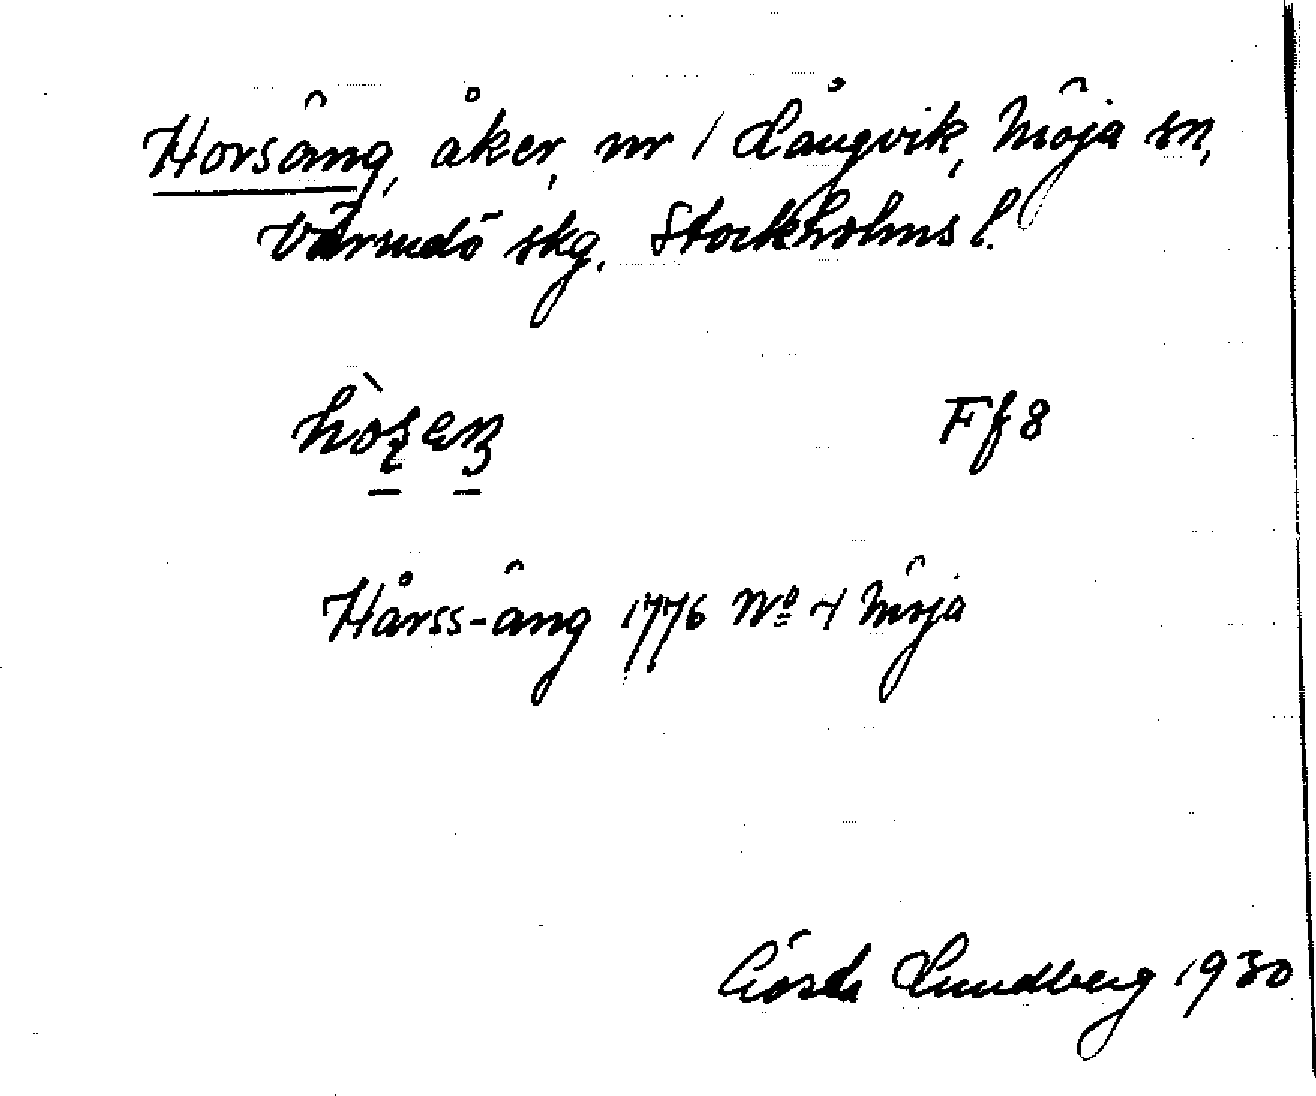 Horsäng, åker, nr 1 Långvik, Möja sn,
Värmdö skg. Stockholms l.
Ff 8
Hårss-äng 1776 No 4 Möja
Gösta Lundberg 1930